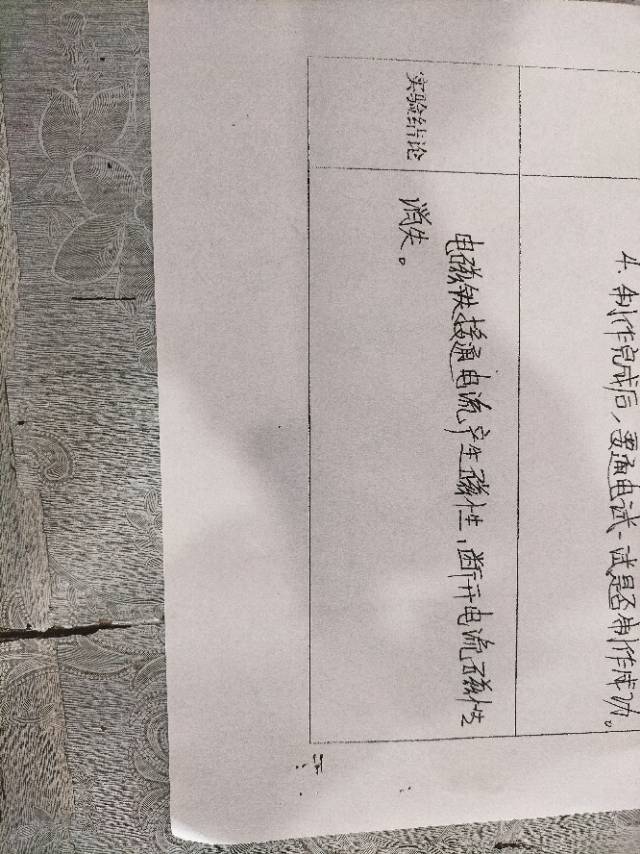 4. 制作完成后，要通电试一试是否制作成功。
实验结论
电磁铁接通电流产生磁性，断开电流后磁性
消失。